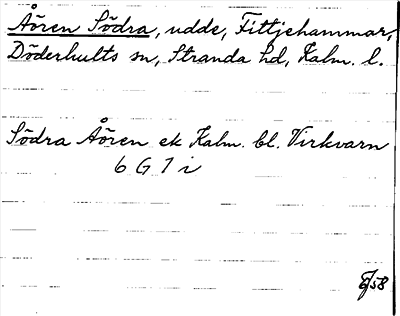 Åören Södra, udde, Fittjehammar,
Döderhults sn, Stranda hd, Kalm. l.
Södra Åören ek Kalm. bl. Virkvarn
6 G 7 i